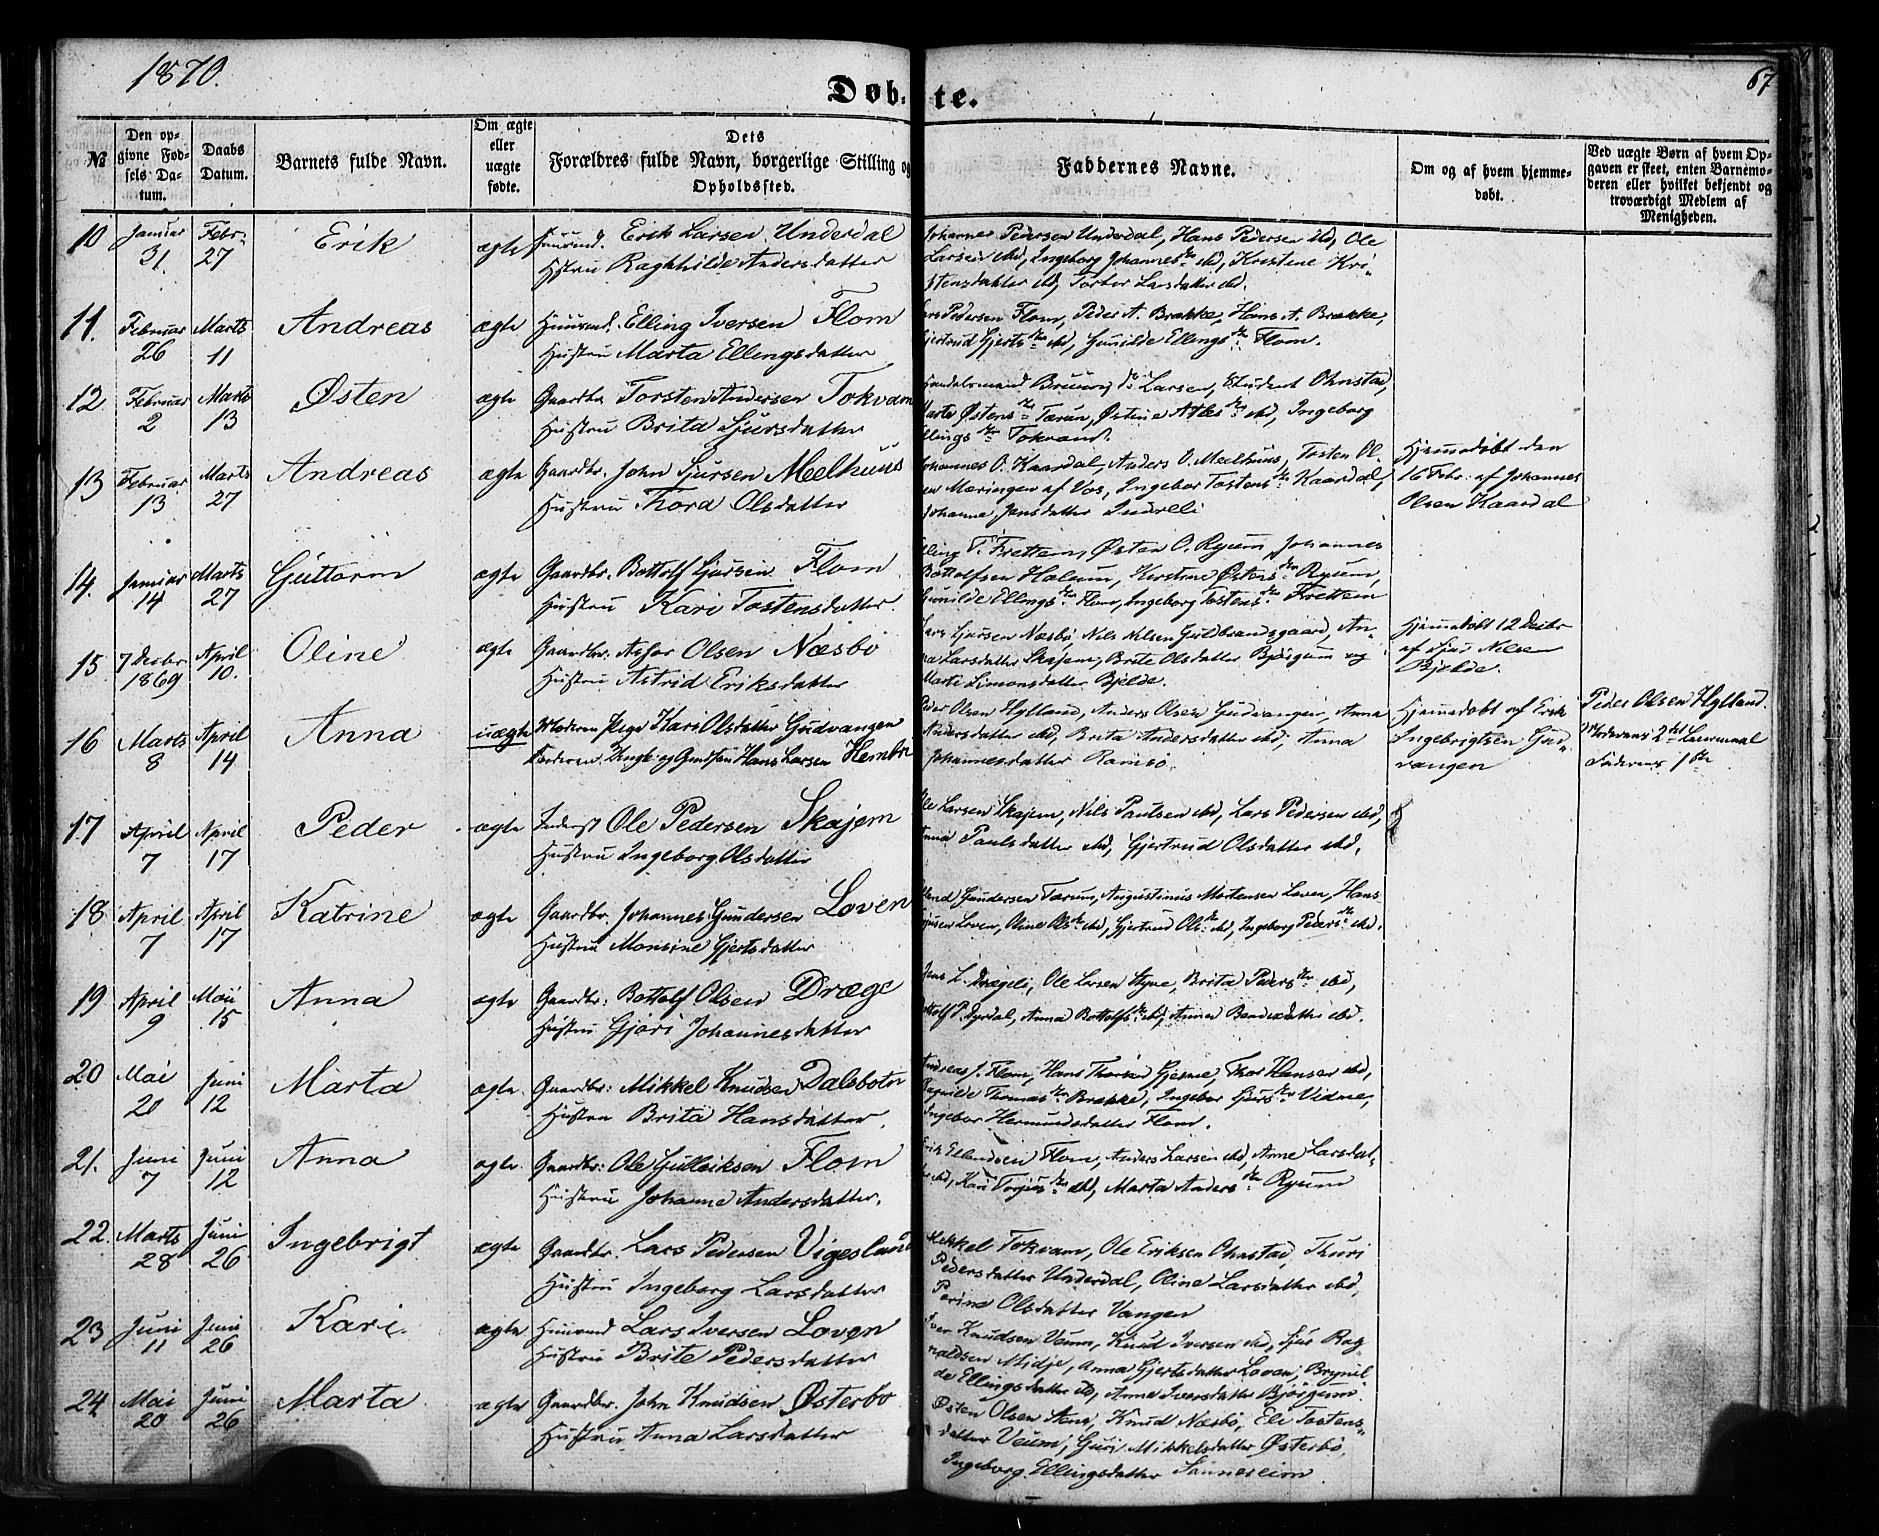 1870.
67
Døbte.
№
Den opgivne Fødsels Datum.
Daabs Datum.
Barnets fulde Navn.
Om ægte eller uægte fødte.
Dets Forældres fulde Navn, borgerlige Stilling og Opholdssted.
Faddernes Navne.
Om og af hvem hjemmedøbt.
Ved uægte Børn af hvem Opgaven er skeet, enten Barnemoderen eller hvilket bekjendt og troværdigt Medlem af Menigheden.
10 Januar 31 Febr. 27 Erik ægte Huusmd. Erik Larsen Underdal
Hustru Raghhilde Andersdatter
Johannes Pedersen Underdal, Hans Pedersen ibd, Ole
Larsen ibd, Ingeborg Johannesdtr ibd, Kristene Kri-
stensdatter ibd, Torbor Larsdatter ibd.
11. Februar 26 Marts 11 Andreas ægte Huusmd. Elling Iversen Flom
Hustru Marta Ellingsdatter
Lars Pedersen Flom, Peder A. Brække, Hans A. Brække,
Gjertrud Gjertsdtr ibd, Gunilde Ellingsdtr Flom.
12 Februar 2 Marts 13 Østen ægte Gaardbr. Torsten Andersen Tokvam
Hustru Brita Sjursdatter
Handelsmand Larsen, Student Ohnstad,
Marta Østensdtr Tærum, Østine Atlesdtr ibd, Ingeborg
Ellingsdtr Tokvam.
13 Februar 13 Marts 27 Andreas ægte Gaardbr. John Sjursen Melhuus
Hustru Thora Olsdatter
Johannes O. Kaardal, Anders O. Melhuus, Tosten Ol-
sen Mæringen af Vos, Ingebor Tostensdtr Kaardal,
Johanne Jensdatter Indreli
Hjemmedøbt den
16 Febr. af Johannes
Olsen Kaardal
14. Januar 14 Marts 27 Guttorm ægte Gaardbr. Bottolf Sjursen Flom
Hustru Kari Tostensdatter.
Elling T. Frettem, Østen O. Ryum, Johannes
Bottolfsen Holum, Kirstine Østensdtr Ryum,
Gunilde Ellingsdtr Flom, Ingeborg Tostensdtr Frettem
15. 7 Decbr 1869 April 10. Oline ægte Gaardbr. Olsen Næsbø
Hustru Astrid Eriksdatter
Lars Sjursen Næsbø, Nils Nilsen Guldbrandsgaard, An-
na Larsdatter Skajem, Brite Olsdatter Bjørgum og
Marte Simonsdatter Bjelde.
Hjemmedøbt 12 Decbr
af Sjur Nilsen
Bjelde.
16 Marts 8 April 14 Anna uægte Moderen Pige Kari Olsdatter Gudvangen
Faderen Ungk. og Hans Larsen Hembre
Peder Olsen Hylland, Anders Olsen Gudvangen, Anna
Andersdatter ibd, Brita Andersdatter ibd, Anna
Johannesdatter Ramsø.
Hjemmedøbt af Erik
Ingebrigtsen Gud-
vangen
Peder Olsen Hylland.
Moderens 2det Leiermaal
Faderens 1ste
17. April 7 April 17 Peder ægte Inderst Ole Pedersen Skajem
Hustru Ingeborg Olsdatter
Ole Larsen Skajem, Nils Paulsen ibd, Lars Pedersen ibd,
Anna Paulsdatter ibd, Gjertrud Olsdatter ibd.
18 April 7 April 17 Katrine ægte Gaardbr. Johannes Gundersen Loven
Hustru Monsine Gjertsdatter
Gundersen Tærum, Augustinus Mortensen Loven, Hans
Loven, Oline Olsdtr ibd, Gjertrud Olsdtr ibd, Ingeborg Pedersdtr ibd.
19 April 9 Mai 15 Anna ægte Gaardbr. Bottolf Olsen Dræge
Hustru Gjøri Johannesdatter
Jens L. Drægeli, Ole Larsen Styve, Brita Pedersdtr ibd,
Bottolf P. Dyrdal, Anna Bottolfsdtr ibd, Anna Bendixdatter ibd.
20 Mai 20 Juni 12 Marta ægte Gaardbr. Mikkel Knudsen Dalsbotn
Hustru Brita Hansdatter.
Andreas J. Flom, Hans Thorsen Gjerne, Thor Hansen ibd,
Ragnilde Thomasdtr Brække, Ingebor Vidme,
Ingebor Hermundsdatter Flom.
21. Juni 7 Juni 12 Anna ægte Gaardbr. Ole Gulleiksen Flom
Hustru Johanne Andersdatter.
Erik Ellendsen Flom, Anders Larsen ibd, Anne Larsdat-
ter ibd, Kari ibd, Marta Andersdtr Ryum
22. Marts 28 Juni 26 Ingebrigt ægte Gaardbr. Lars Pedersen Vigesland
Hustru Ingeborg Larsdatter
Mikkel Tokvam, Ole Eriksen Ohnstad, Thuri
Pedersdatter Underdal, Oline Larsdatter ibd,
Perina Olsdatter Vangen
23 Juni 11 Juni 26 Kari ægte Huusmd Lars Iversen Loven
Hustru Brite Pedersdatter
Iver Knudsen Veum, Knud Iversen ibd, Sjur Rag-
naldsen Midje, Anna Gjertsdatter Loven, Brynil-
de Ellingsdatter ibd, Anne Iversdatter Bjørgum.
24 Mai 20 Juni 26 Marta ægte Gaardbr. John Knudsen Østerbø
Hustru Anna Larsdatter
Østen Olsen Stene, Knud Næsbø, Eli Tostens-
datter Veum, Guri Mikkelsdatter Østerbø,
Ingeborg Ellingsdatter Sønnereim.